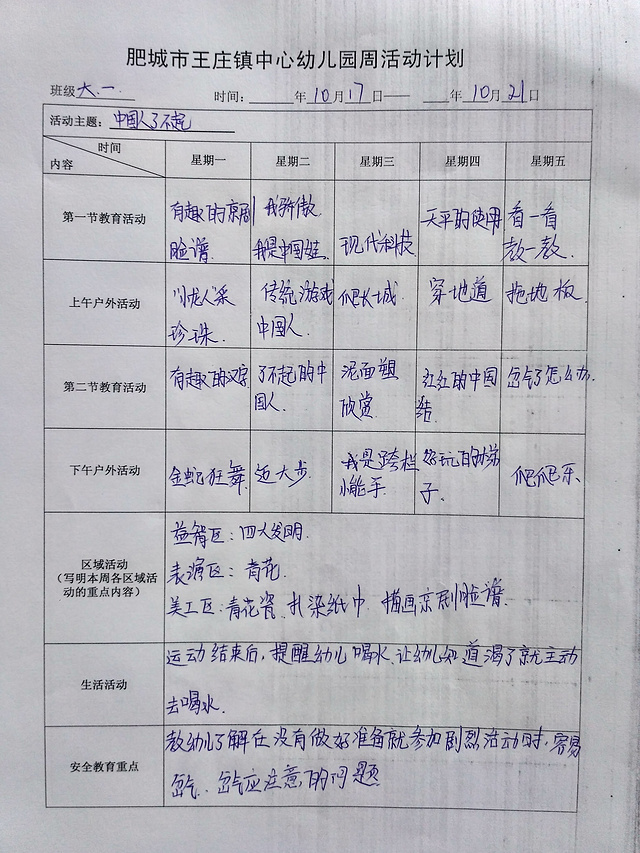 肥城市王庄镇中心幼儿园周活动计划
班级 大.一 时间: 年 10 月 17 日—— 年 10 月 21 日
活动主题: 中国人了不起
时间 内容 星期一 星期二 星期三 星期四 星期五
第一节教育活动 有趣的京剧脸谱. 我骄傲.我是中国娃. 现代科技 天平的使用 看一看 数一数.
上午户外活动 小龙人采珍珠. 传统游戏 中国人. 爬长城 穿地道 拖地板.
第二节教育活动 有趣的汉字 了不起的中国人. 泥面塑欣赏 红红的中国结. 岔气了怎么办.
下午户外活动 金蛇狂舞. 迈大步. 我是跨栏小能手. 好玩的梯子. 爬爬乐.
区域活动
(写明本周各区域活动的重点内容)
益智区: 四大发明.
表演区: 青花.
美工区: 青花瓷. 扎染纸巾. 描画京剧脸谱.
生活活动 运动结束后,提醒幼儿喝水.让幼儿知道渴了就主动
去喝水.
安全教育重点 教幼儿了解在没有做好准备就参加剧烈活动时,容易
岔气. 岔气应注意的问题.